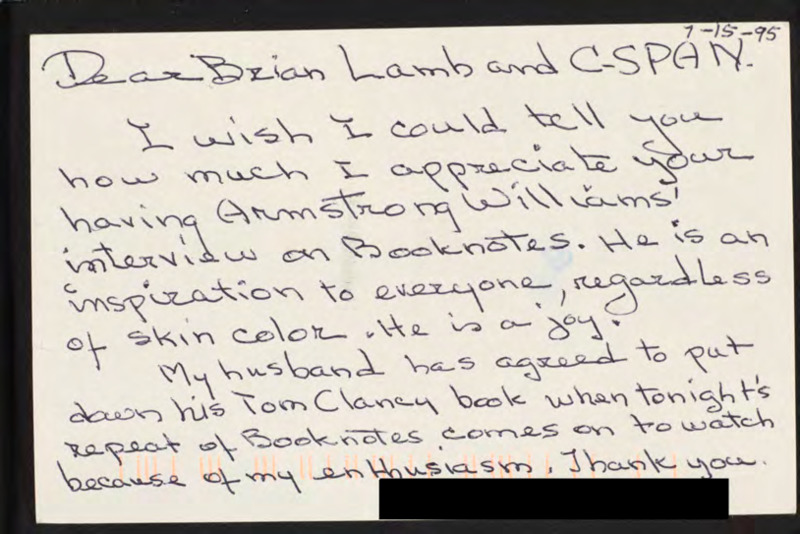 7-15-95
Dear Brian Lamb and C-SPAN.
I wish I could tell you
how much I appreciate your
having Armstrong Williams'
interview on Booknotes. He is an
inspiration to everyone, regardless
of skin color. He is a joy.
My husband has agreed to put
down his Tom Clancy book when tonight's
repeat of Booknotes comes on to watch
because of my enthusiasm. Thank you.